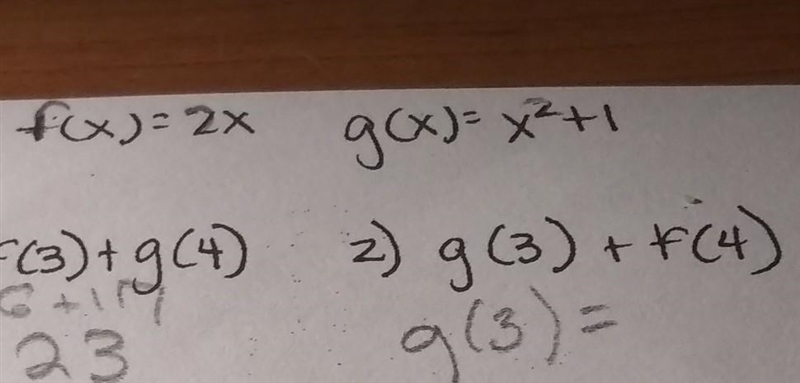 f(x) = 2x g(x) = x²+1
f(3) + g(4) 2) g(3) + f(4)
6 + 17 g(3) =
23